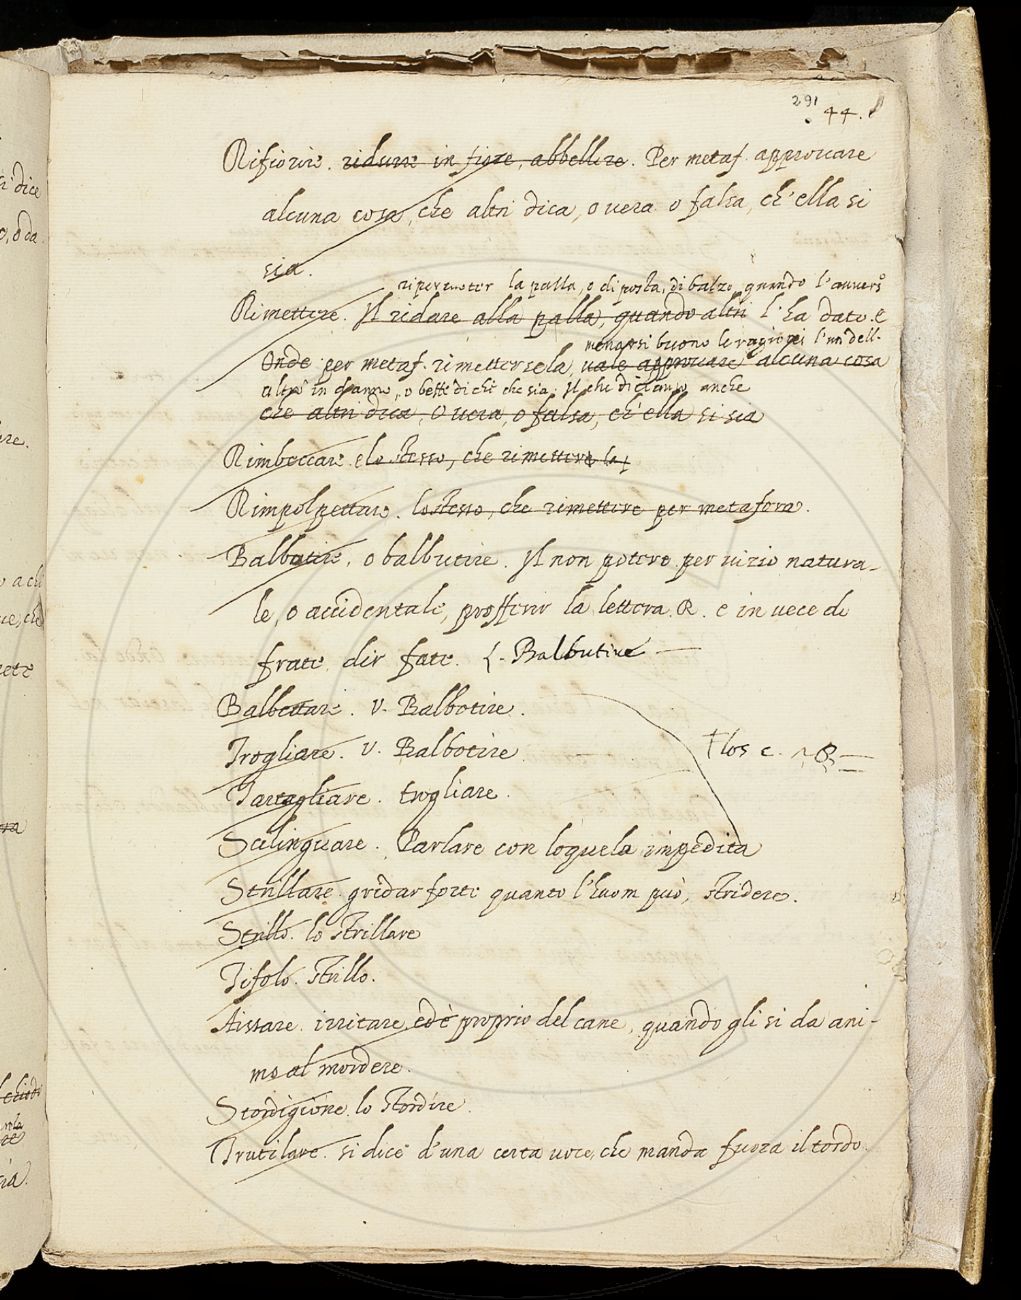 291
44.
Rifiorire. ridurre in fiore, abbellire. Per metaf. approuare
alcuna cosa, che altri dica, o uera o falsa, ch'ella si
sia.
ripercuoter la palla, o di posta, o di balzo, quando l'auuers.o
Rimettere. Il ridare alla palla, quando altri l'ha dato. e
menarsi buone le ragioni l'un dell-
Onde per metaf. rimettersela, uale approuare alcuna cosa
altro in danno, o beffe di chi che sia. Il che diciamo anche
che altri dica, o uera, o falsa, ch'ella si sia
Rimbeccare. è lo stesso, che rimettere la
Rimpolpettare. lo stesso, che rimettere per metafora.
Balbotire, o balbutire. Il non potere per uizio natura-
le, o accidentale, profferir la lettera R. e in uece di
frate dir fate. Balbutire
Balbettare. V. Balbotire.
Trogliare. V. Balbotire
Flos c.
Tartagliare. trogliare.
Scilinguare. Parlare con loquela impedita
Strillare. gridar forte quanto l'huom può, stridere.
Strillo. lo strillare
Tifolo. strillo.
Aissare. irritare, ed è proprio del cane, quando gli si da ani-
mo al mordere.
Stordigione. lo stordire.
Trutilare. si dice d'una certa uoce, che manda fuora il tordo.